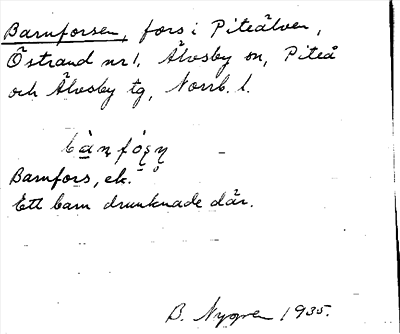 Barnforsen, fors i Piteälven,
Östrand nr 1, Älvsby sn, Piteå
och Älvsby tg, Norrb. l.
Barnfors, ek.
Ett barn drunknade där.
B. Nygren 1935.